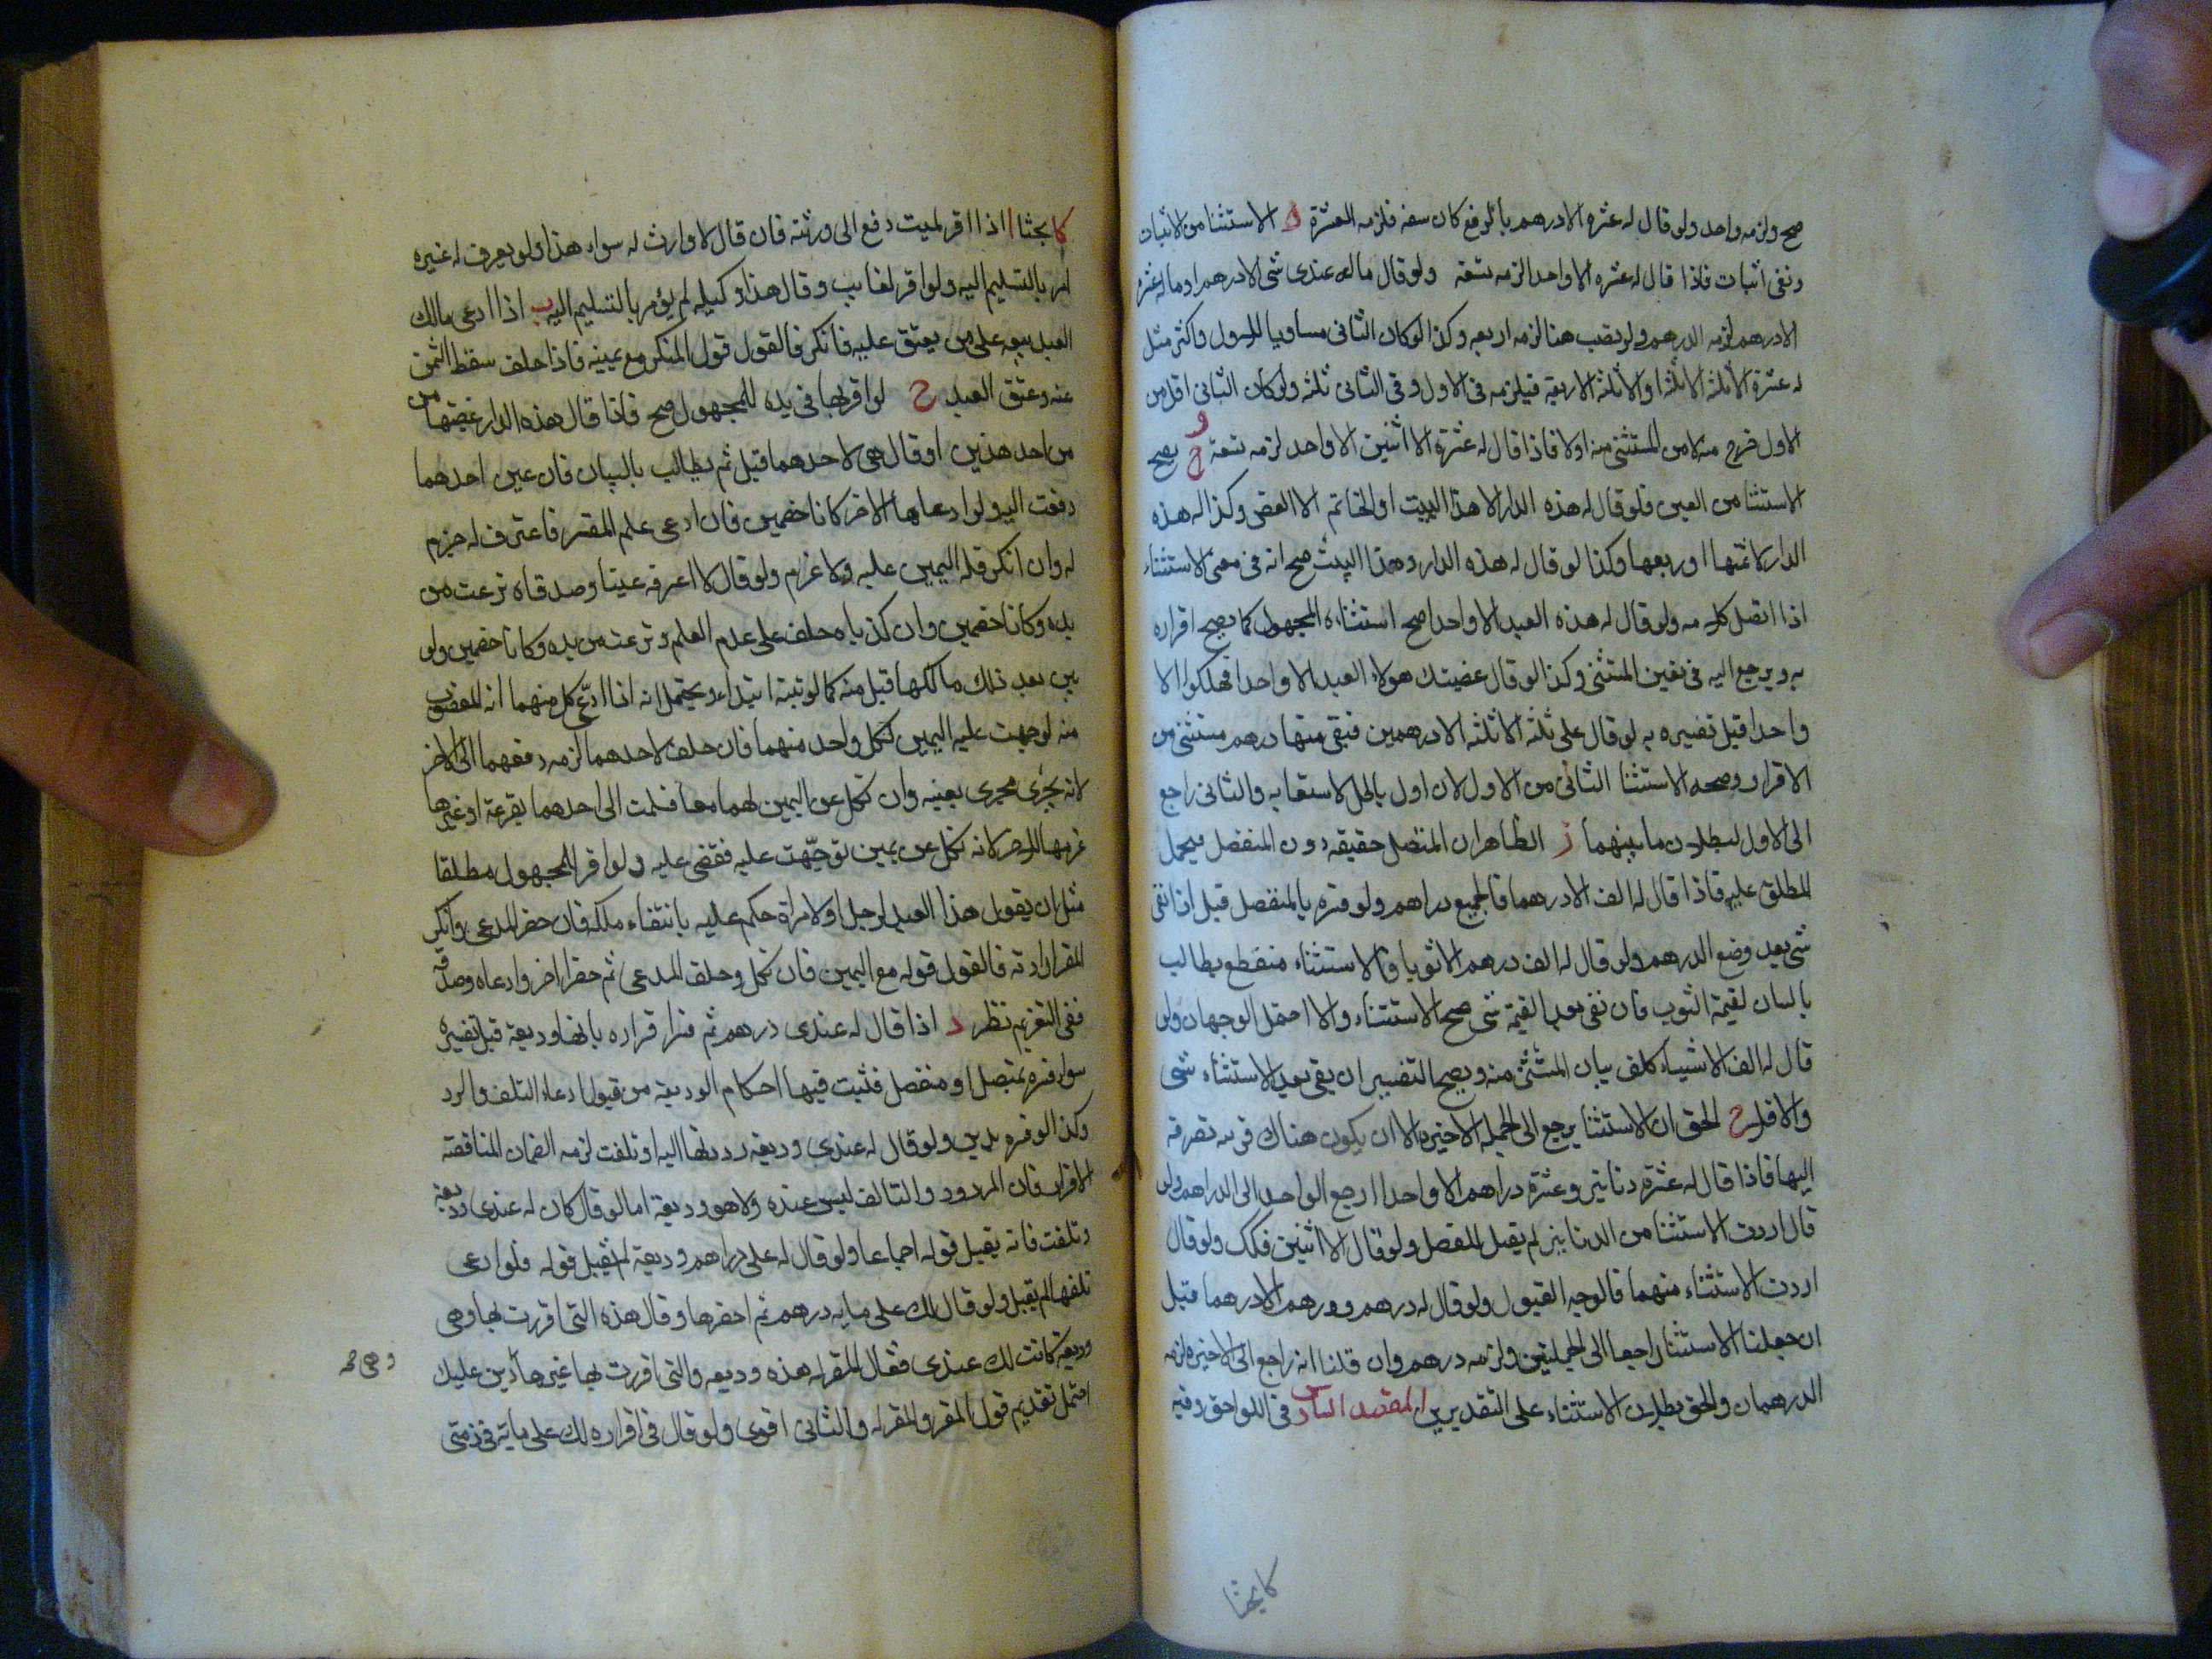 صح ولزمه واحد ولو قال له عشره الا درهم بالرفع كان صفه فلزمه العشرة ه الاستثنا من الاثبات
ونفى اثبات فاذا قال له عشره الا واحدا لزمه تسعة ولو قال ماله عندى شى الا درهم او ماله عشرة
الا درهم لزمه الدرهم ولو نصب هنا لزمه اربعه وكذا لو كان الثانى مساويا للاول واكثر مثل
له عشرة الا ثلثة الا ثلثة او الا ثلثة الا اربعة فيلزمه فى الاول وفى الثانى ثلثة ولو كان الثانى اقل من
الاول خرج منه لا من المستثنى منه اولا فاذا قال له عشرة الا اثنين الا واحد لزمه تسعة و يصح
الاستثنا من العين فلو قال له هذه الدار الا هذا البيت او الخاتم الا الفص وكذا له هذه
الدار الا ثلثها او ربعها وكذا لو قال له هذه الدار وهذا البيت صح انه فى معنى الاستثناء
اذا اتصل كلامه ولو قال له هذه العبيد الا واحدا صح استثناء المجهول كما يصح اقراره
به ويرجع اليه فى تعين المستثنى وكذا لو قال غصبتك هولاء العبيد الا واحدا فهلكوا الا
واحدا قبل تفسيره به لو قال على ثلثه الا ثلثه الا درهمين فبقى منها درهم مستثنى من
الاقرار وصحه الاستثنا الثانى من الاول لان اول باطل لاستعابه والثانى راجع
الى الاول لبطلان ما بينهما ز الظاهر ان المتصل حقيقه دون المنفصل فيحمل
المطلق عليه فاذا قال له الف الا درهما فالجميع دراهم ولو فسره بالمنفصل قبل اذا نفى
شى بعد وضع الدرهم ولو قال له الف درهم الا ثوبا فالاستثناء منقطع يطالب
بالبيان لقيمة الثوب فان نفى بعد القيمة شى صح الاستثناء والا احتمل الوجهان ولو
قال له الف الا شيئا كلف بيان المستثنى منه ويصح التفسير ان بقى بعد الاستثناء شى
والا فلا ح الحق ان الاستثنا يرجع الى الجمله الاخيرة الا ان يكون هناك قرينه تصرفه
اليها فاذا قال له عشرة دنانير وعشرة دراهم الا واحدا ارجع الواحد الى الدراهم ولو
قال اردت الاستثنا من الدنانير لم يقبل للفصل ولو قال الا اثنين فكك ولو قال
اردت الاستثناء منهما فالوجه القبول ولو قال له درهم ودرهم الا درهما قبل
ان جعلنا الاستثنا راجعا الى الجملتين ولزمه درهم وان قلنا انه راجع الى الاخيرة لزمه
الدرهمان والحق بطلان الاستثناء على التقديرين المقصد السادس فى اللواحق وفيه
كا بحثا
كا بحثا ا اذا اقر لميت دفع الى ورثته فان قال لا وارث له سواء هذا ولو يعرف له غيره
امر بالتسليم اليه ولو اقر لغايب وقال هذا وكيله لم يؤمر بالتسليم اليه ب اذا ادعى مالك
العبد بيعه على من يعتق عليه فانكر فالقول قول المنكر مع يمينه فاذا حلف سقط الثمن
عنه وعتق العبد ح لو اقر بما فى يده للمجهول صح فاذا قال هذه الدار غصبتها من
من احد هذين او قال هى لاحدهما قبل ثم يطالب بالبيان فان عين احدهما
دفعت اليه ولو ادعاها الاخر كانا خصمين فان ادعى علم المقر فاعترف له غرم
له وان انكر فله اليمين عليه ولا غرم ولو قال لا اعرفه عينا وصدقاه نزعت من
يده وكانا خصمين وان كذباه حلف على عدم العلم ونزعت من يده وكانا خصمين ولو
بين بعد ذلك مالكها قبل منه كما لو نبته ابتداء ويحتمل انه اذا ادعى كل منهما انه المغصوب
منه توجهت عليه اليمين لكل واحد منهما فان حلف لاحدهما لزمه دفعهما الى الاخر
لانه يجرى مجرى تعينه وان نكل عن اليمين لهما معا فسلمت الى احدهما بقرعة او غيرها
غرمها للاخر لانه نكل عن يمين توجهت عليه فقضى عليه ولو اقر للمجهول مطلقا
مثل ان يقول هذا العبد لرجل او لامراة حكم عليه بانتفاء ملكه فان حضر المدعى وانكر
المقر ارادته فالقول قوله مع اليمين فان نكل وحلف المدعى ثم حضر اخر وادعاه وصدقه
ففى التغريم نظر د اذا قال له عندى درهم ثم فسر اقراره بانها وديعة قبل تفسيره
سواء فسره بمتصل او منفصل فثبت فيها احكام الوديعة من قبول ادعاء التلف والرد
وكذا لو فسره بدين ولو قال له عندى وديعه رددتها اليه او تلفت لزمه الضمان للمناقصة
الاقرار فان المردود والتالف ليس عنده ولا هو وديعة اما لو قال كان له عندى وديعة
وتلفت فانه يقبل قوله اجماعا ولو قال له على دراهم وديعة لم يقبل قوله فلو ادعى
تلفها لم يقبل ولو قال لك على مايه درهم ثم احضرها وقال هذه التى اقررت بها وهى
وديعة كانت لك عندى فقال المقر له هذه وديعه والتى اقررت بها غيرها دين عليك
احتمل تقديم قول المقر والمقر له والثانى اقوى ولو قال فى اقراره لك على ماية فى ذمتى